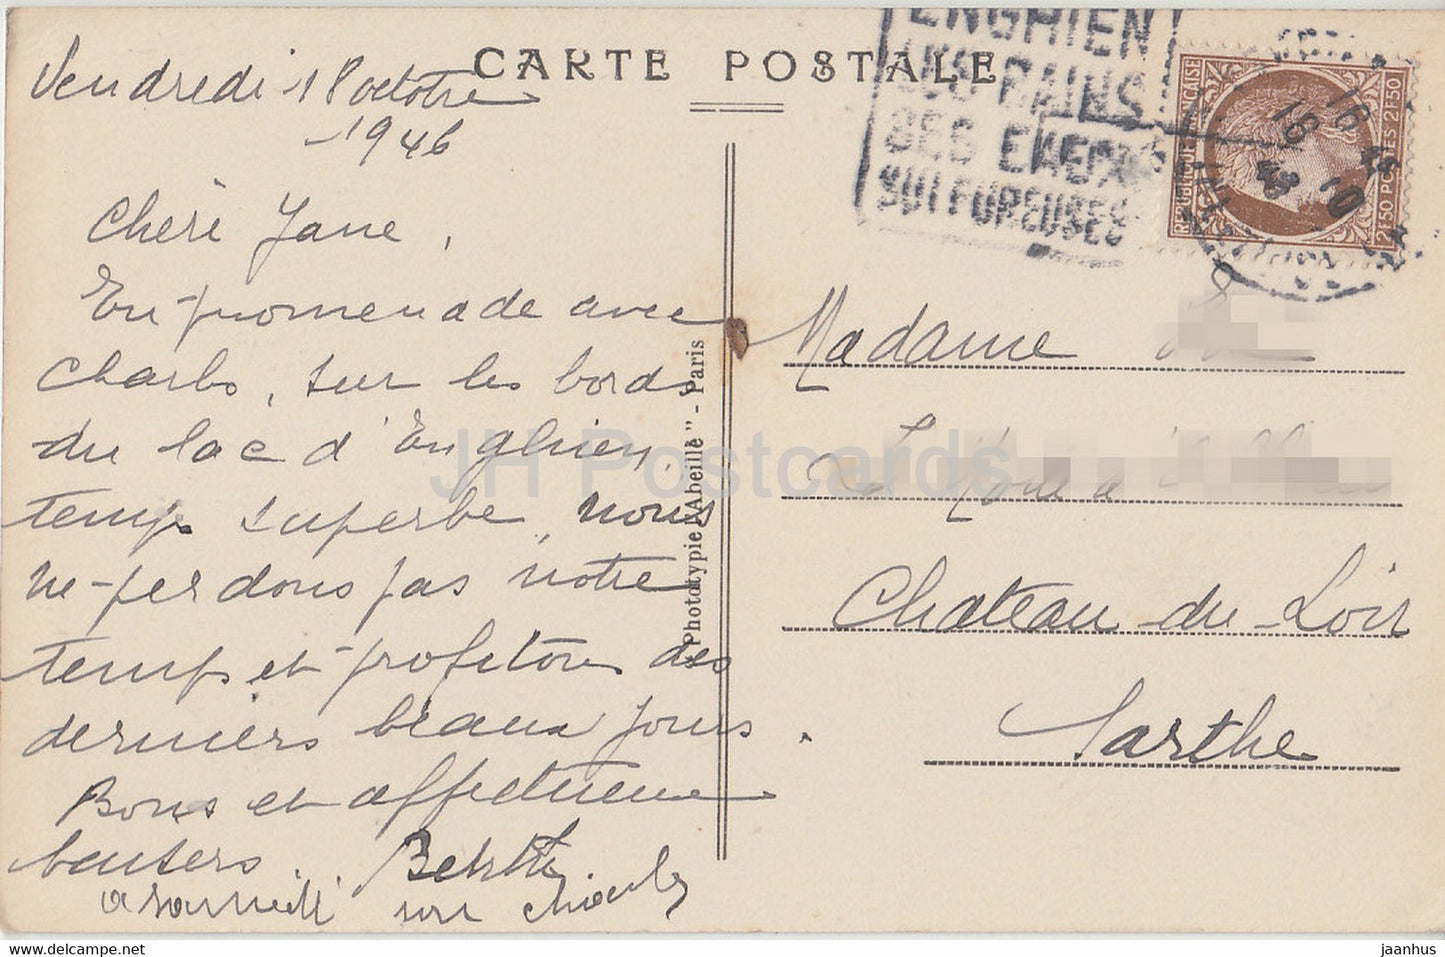 CARTE POSTALE
Vendredi 18 octobre
1946
Chère Jane,
En promenade avec
Charles, sur les bords
du lac d'Enghien,
temps superbe, nous
ne perdons pas notre
temps et profitons des
derniers beaux jours.
Bons et affectueux
baisers. Berthe
a samedi
Phototypie "L'Abeille" - Paris
ENGHIEN
LES BAINS
SES EAUX
SULFUREUSES
REPUBLIQUE FRANÇAISE
2F50 POSTES 2F50
16
18 10
46
Madame
Château-du-Loir
Sarthe
JH Postcards
jaanhus